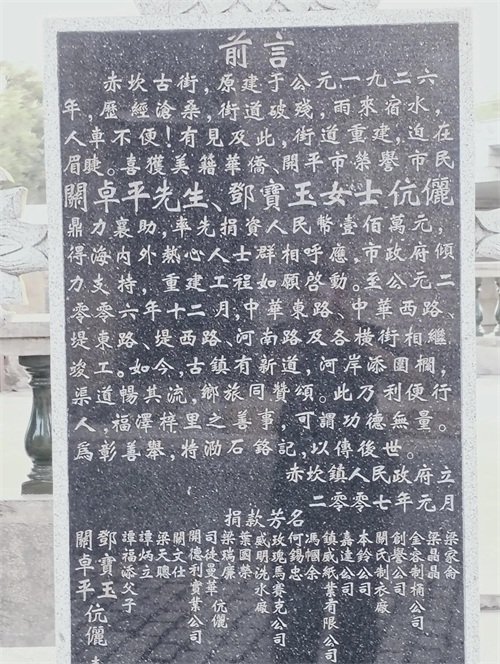 前言
赤坎古街，原建于公元一九二六
年，歷經滄桑，街道破殘，雨來宿水，
人車不便！有見及此，街道重建，迫在
眉睫。喜獲美籍華僑、開平市榮譽市民
關卓平先生、鄧寶玉女士伉儷
鼎力襄助，率先捐資人民幣壹佰萬元，
得海内外熱心人士群相呼應，市政府傾
力支持，重建工程如願啓動。至公元二
零零六年十二月，中華東路、中華西路、
堤東路、堤西路、河南路及各橫街相繼
竣工。如今，古鎮有新道，河岸添圍欄，
渠道暢其流，鄉旅同贊頌。此乃利便行
人，福澤梓里之善事，可謂功德無量。
爲彰善舉，特泐石銘記，以傳後世。
赤坎鎮人民政府立
二零零七年元月
捐款芳名
關卓平伉儷
鄧寶玉
譚福添父子
譚炳立
梁天聰
關文仕
開德利實業公司
司徒曼華伉儷
梁瑞廉
葉國榮
威明洗水廠
玫瑰馬賽克公司
何錫忠
馮幗余
鎮威紙業有限公司
嘉達公司
本鈴公司
關氏制衣廠
創譽公司
金容制桶公司
梁晶晶
梁家侖